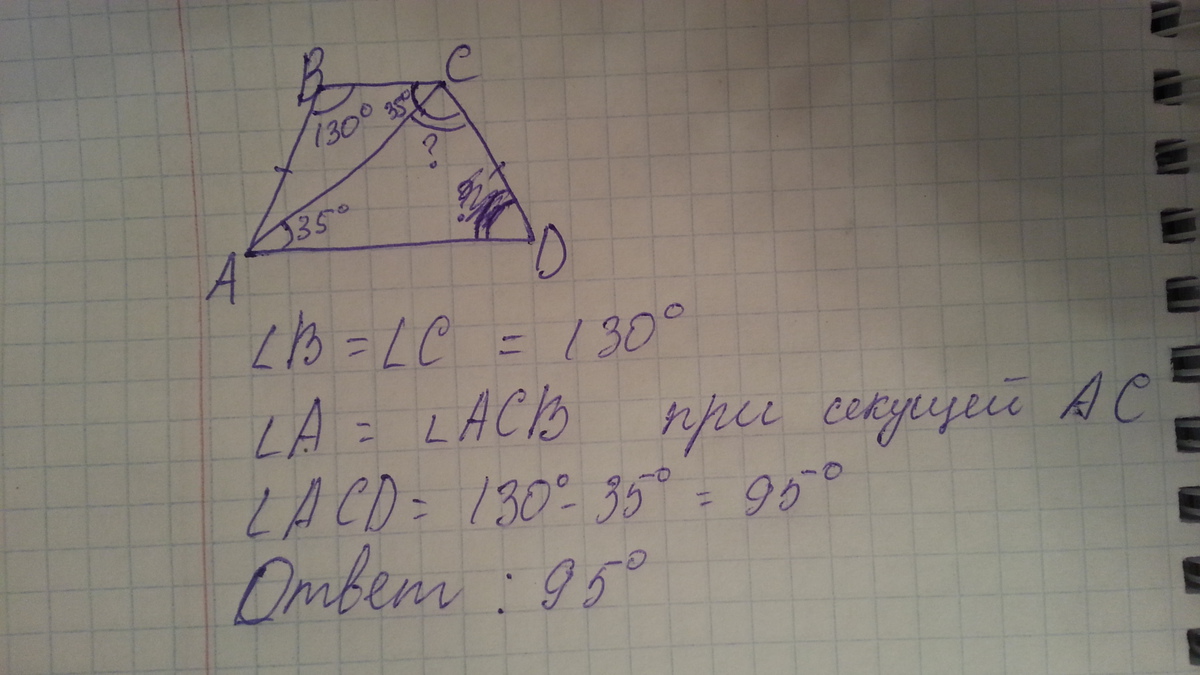 B C
130° 35°
?
35°
A D
∠B = ∠C = 130°
∠A = ∠ACB при секущей AC
∠ACD = 130° - 35° = 95°
Ответ : 95°